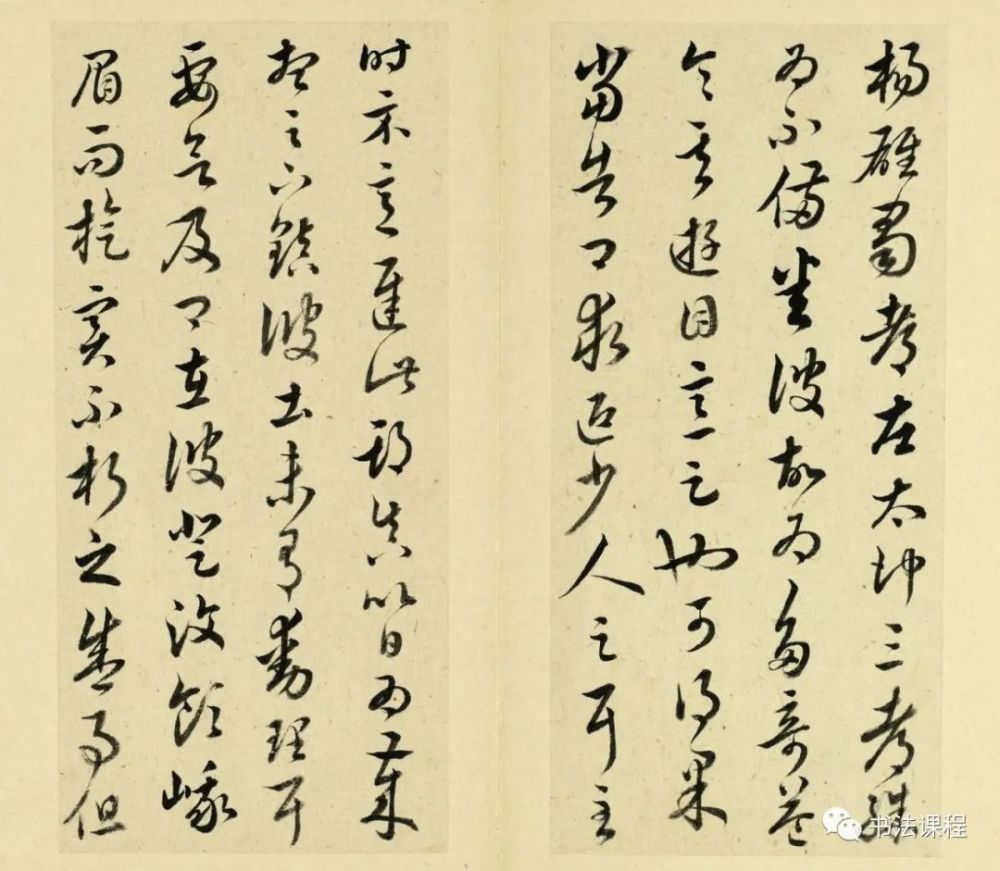 楊雄蜀都左太沖三都殊
為不備悉彼故為多奇益
令其遊目意足也可得果
當告卿求迎少人足耳至
時示意遲此期真以日為歲
想足下鎮彼土未有動理耳
要欲及卿在彼登汶領峨
眉而旋實不朽之盛事但
书法课程